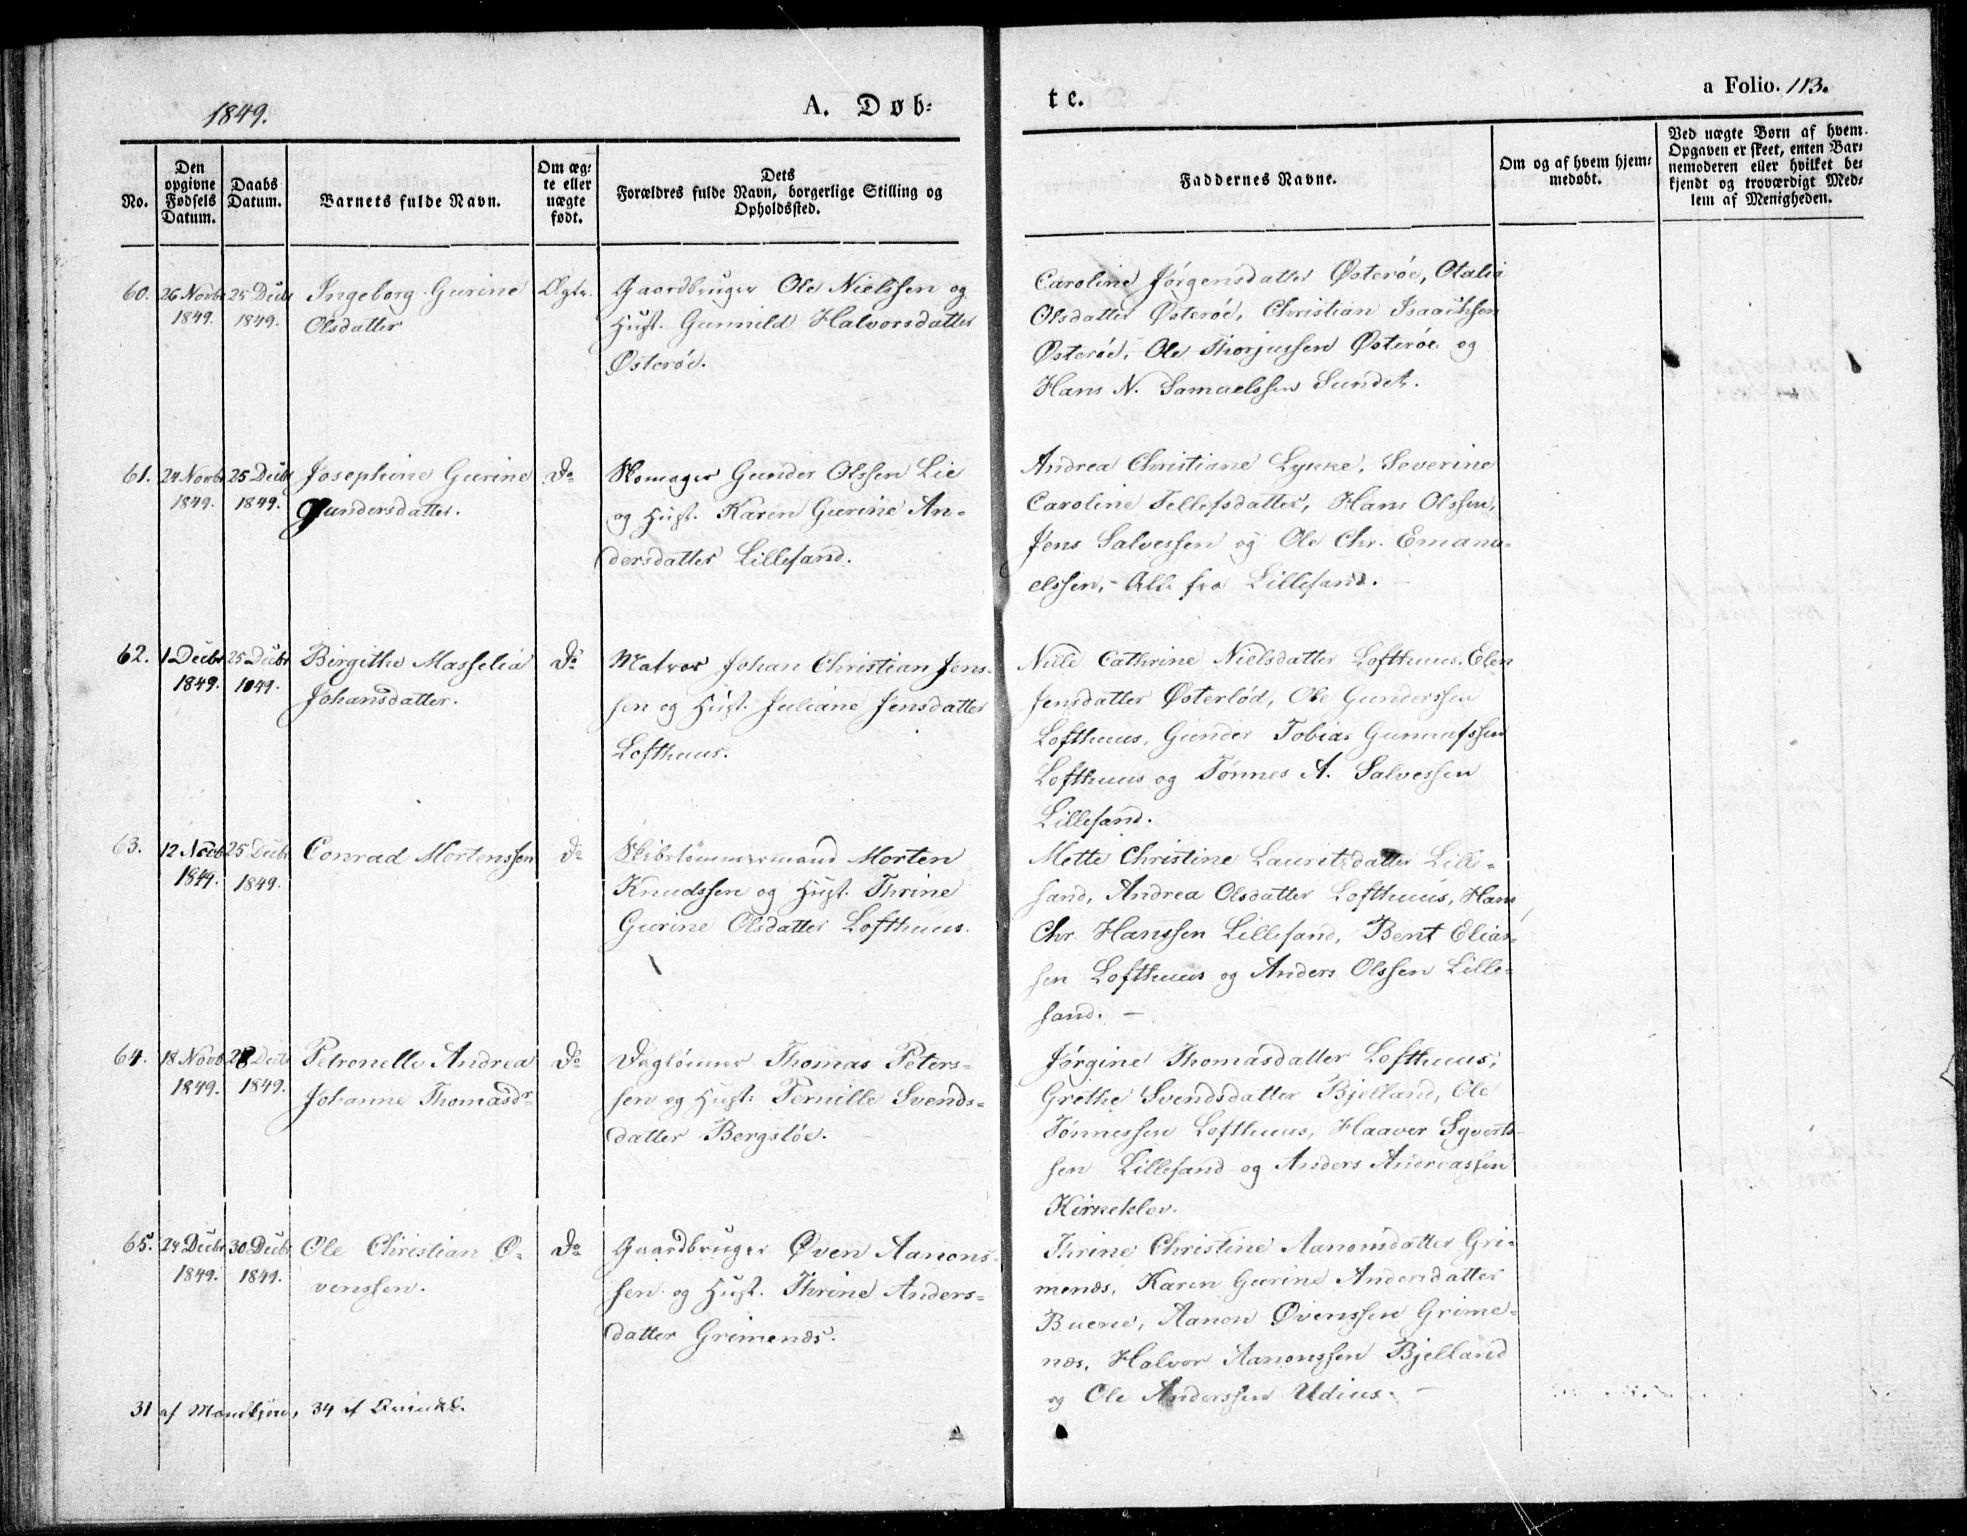 1849.
A. Døb-
te.
a Folio. 113.
No.
Den opgivne Fødsels Datum.
Daabs Datum.
Barnets fulde Navn.
Om ægte eller uægte født.
Dets Forældres fulde Navn, borgerlige Stilling og Opholdssted.
Faddernes Navne.
Om og af hvem hjemmedøbt.
Ved uægte Børn af hvem Opgaven er skeet, enten Barnemoderen eller hvilket bekjendt og troværdigt Medlem af Menigheden.
60. 26 Novbr 25 Decbr Ingeborg Gurine Ægte. Gaardbruger Ole Nielssen og
1849. 1849. Olsdatter Hust. Gunnild Halvorsdatter
Østerøe.
Caroline Jørgensdatter Østerøe, Otalia
Olsdatter Østerøe, Christian Isaachsen
Østerøe, Ole Thorjussen Østerøe og
Hans N. Samuelssen Sundet.
61. 24 Novbr 25 Decbr Josephine Gurine Do Skomager Gunder Olssen Lie
1849. 1849. Gundersdatter. og Hust. Karen Gurine An-
dersdatter Lillesand.
Andrea Christiane Lykke, Severine
Caroline Tellefsdatter, Hans Olssen,
Jens Salvessen og Ole Chr. Emanu-
elssen, - Alle fra Lillesand. -
62. 1 Decbr 25 Decbr Birgithe Masselia Do Matros Johan Christian Jens-
1849. 1849. Johansdatter. sen og Hust. Juliane Jensdatter
Lofthuus.
Nille Cathrine Nielsdatter Lofthuus, Elen
Jensdatter Østerlød, Ole Gunderssen
Lofthuus, Gunder Tobias Gunnufssen
Lofthuus og Tønnes A. Salvessen
Lillesand.
63. 12 Novb 25 Decbr Conrad Mortenssen Do Skibstømmermand Morten
1849. 1849. Knudssen og Hust. Thrine
Gurine Olsdatter Lofthuus.
Mette Christine Lauretzdatter Lille-
sand, Andrea Olsdatter Lofthuus, Hans
Chr. Hanssen Lillesand, Bent Elias-
sen Lofthuus og Anders Olssen Lille-
sand. -
64. 18 Novb 28 Decbr Petronelle Andrea Do Daglønner Thomas Peters-
1849. 1849. Johanne Thomasdr sen og Hust. Pernille Svends-
datter Bergsløe.
Jørgine Thomasdatter Lofthuus,
Grethe Svendsdatter Bjelland, Ole
Tønnessen Lofthuus, Haaver Syverts-
sen Lillesand og Anders Andreassen
Kirkeklev.
65. 24 Decbr 30 Decbr Ole Christian Ø- Do Gaardbruger Øven Aanons-
1849. 1849. venssen. sen og Hust. Thrine Anders-
datter Grimenæs.
Thrine Christine Aanonsdatter Gri-
menæs, Karen Gurine Andersdatter
Buene, Aanon Øvenssen Grime-
næs, Halvor Aanonssen Bjelland
og Ole Anderssen Udius. -
31 af Mandkjøn, 34 af Qvindek.